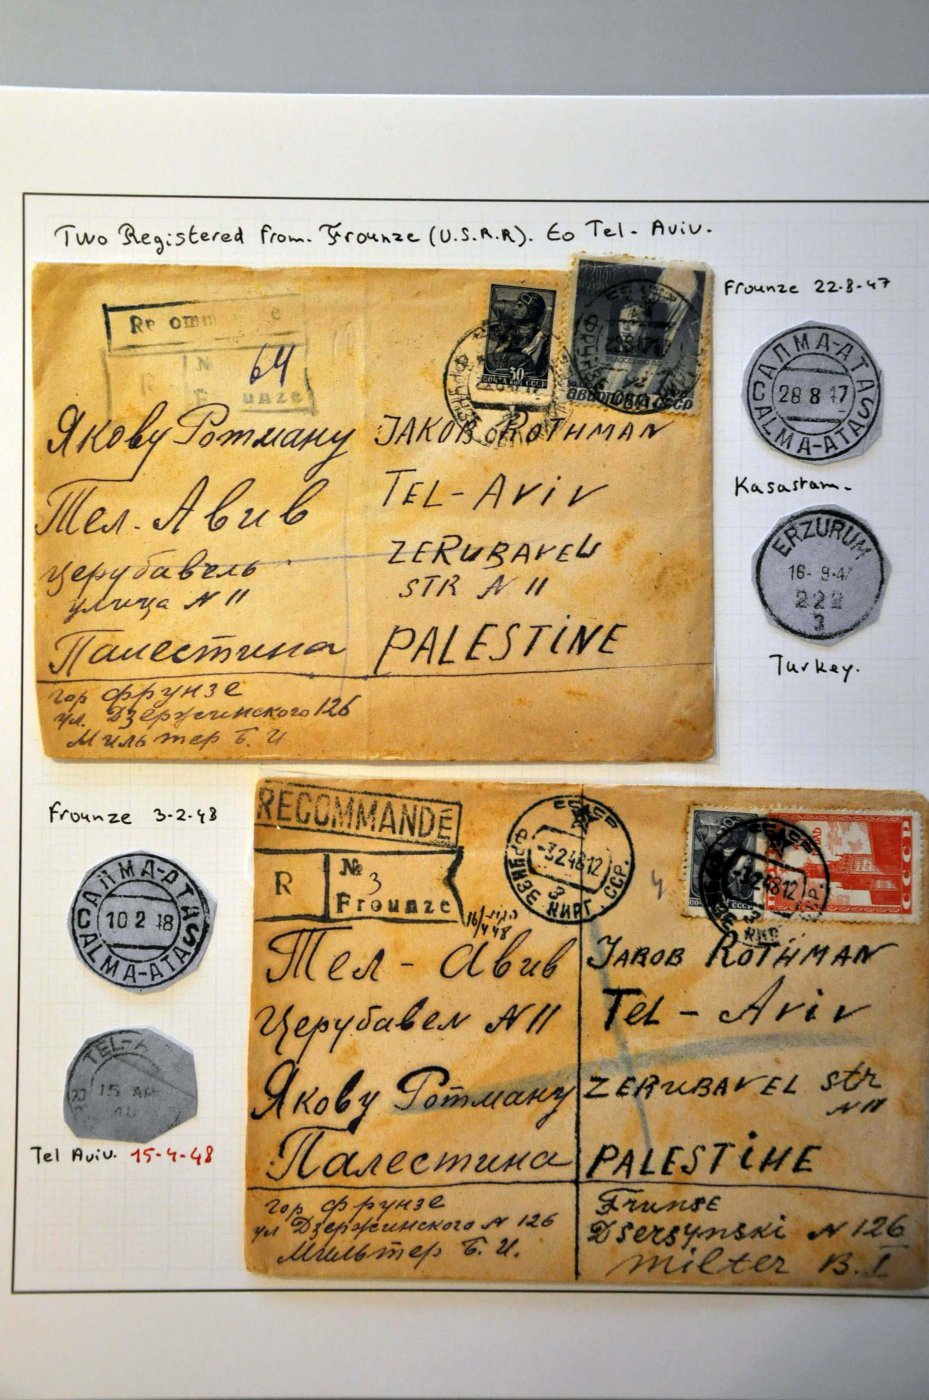 Two Registered from. Frounze (U.S.R.R). to Tel-Aviv.
Frounze 22-8-47
R N
64 Frounze
30
ПОЧТА СССР
АВИАПОЧТА СССР
Якову Ротману
Тел. Авив
Церубавель
улица N 11
Палестина
гор Фрунзе
ул. Дзержинского 126
Мильтер Б. И
JAKOB ROTHMAN
TEL-AVIV
ZERUBAVEL
STR N 11
PALESTINE
САЛМА-АТА
28 8 47
CALMA-ATAS
Kasastam.
ERZURUM
16-9-47
222
3
Turkey.
Frounze 3-2-48
САЛМА-АТА
10 2 48
CALMA-ATAS
TEL-A
15 AP
48
Tel Aviv. 15-4-48
RECOMMANDÉ
R № 3
Frounze
16/4 48
ФРУНЗЕ КИРГ. ССР.
-3.2.48.12
СССР
-3.2.48.12
Тел - Авив
Церубавел N 11
Якову Ротману
Палестина
гор Фрунзе
ул Дзержинского N 126
Мильтер Б. И.
JAKOB ROTHMAN
Tel - Aviv
ZERUBAVEL str
N 11
PALESTINE
Frunse
Dsersynski N 126
Milter B. I